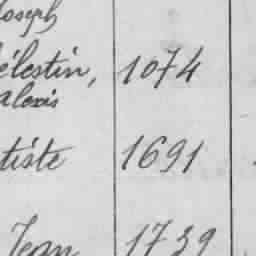 Joseph
élestin, 1074
alexis
tiste 1691
Jean 1739